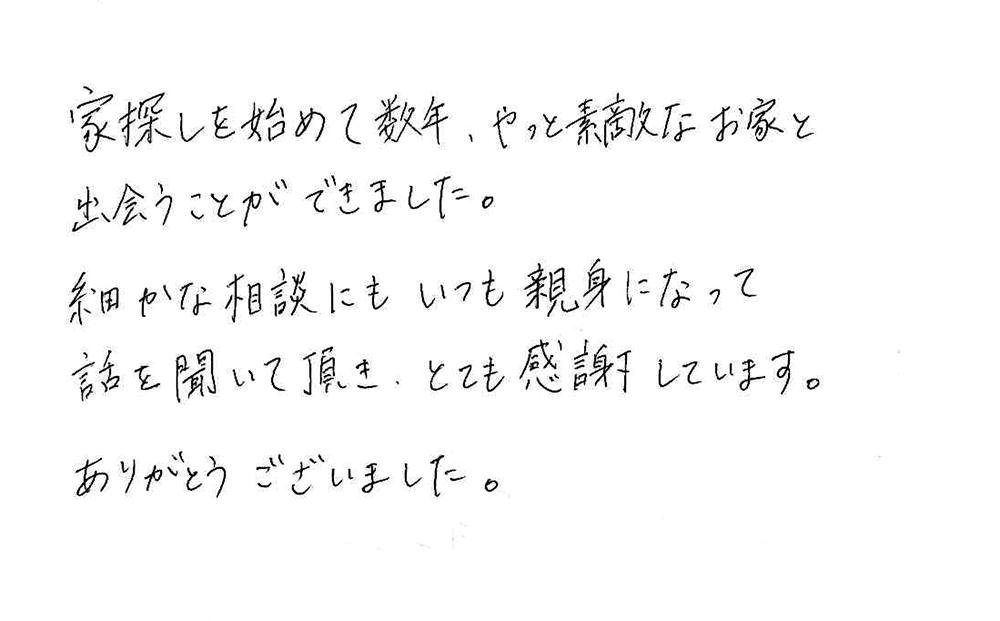 家探しを始めて数年、やっと素敵なお家と
出会うことができました。
細かな相談にもいつも親身になって
話を聞いて頂き、とても感謝しています。
ありがとうございました。